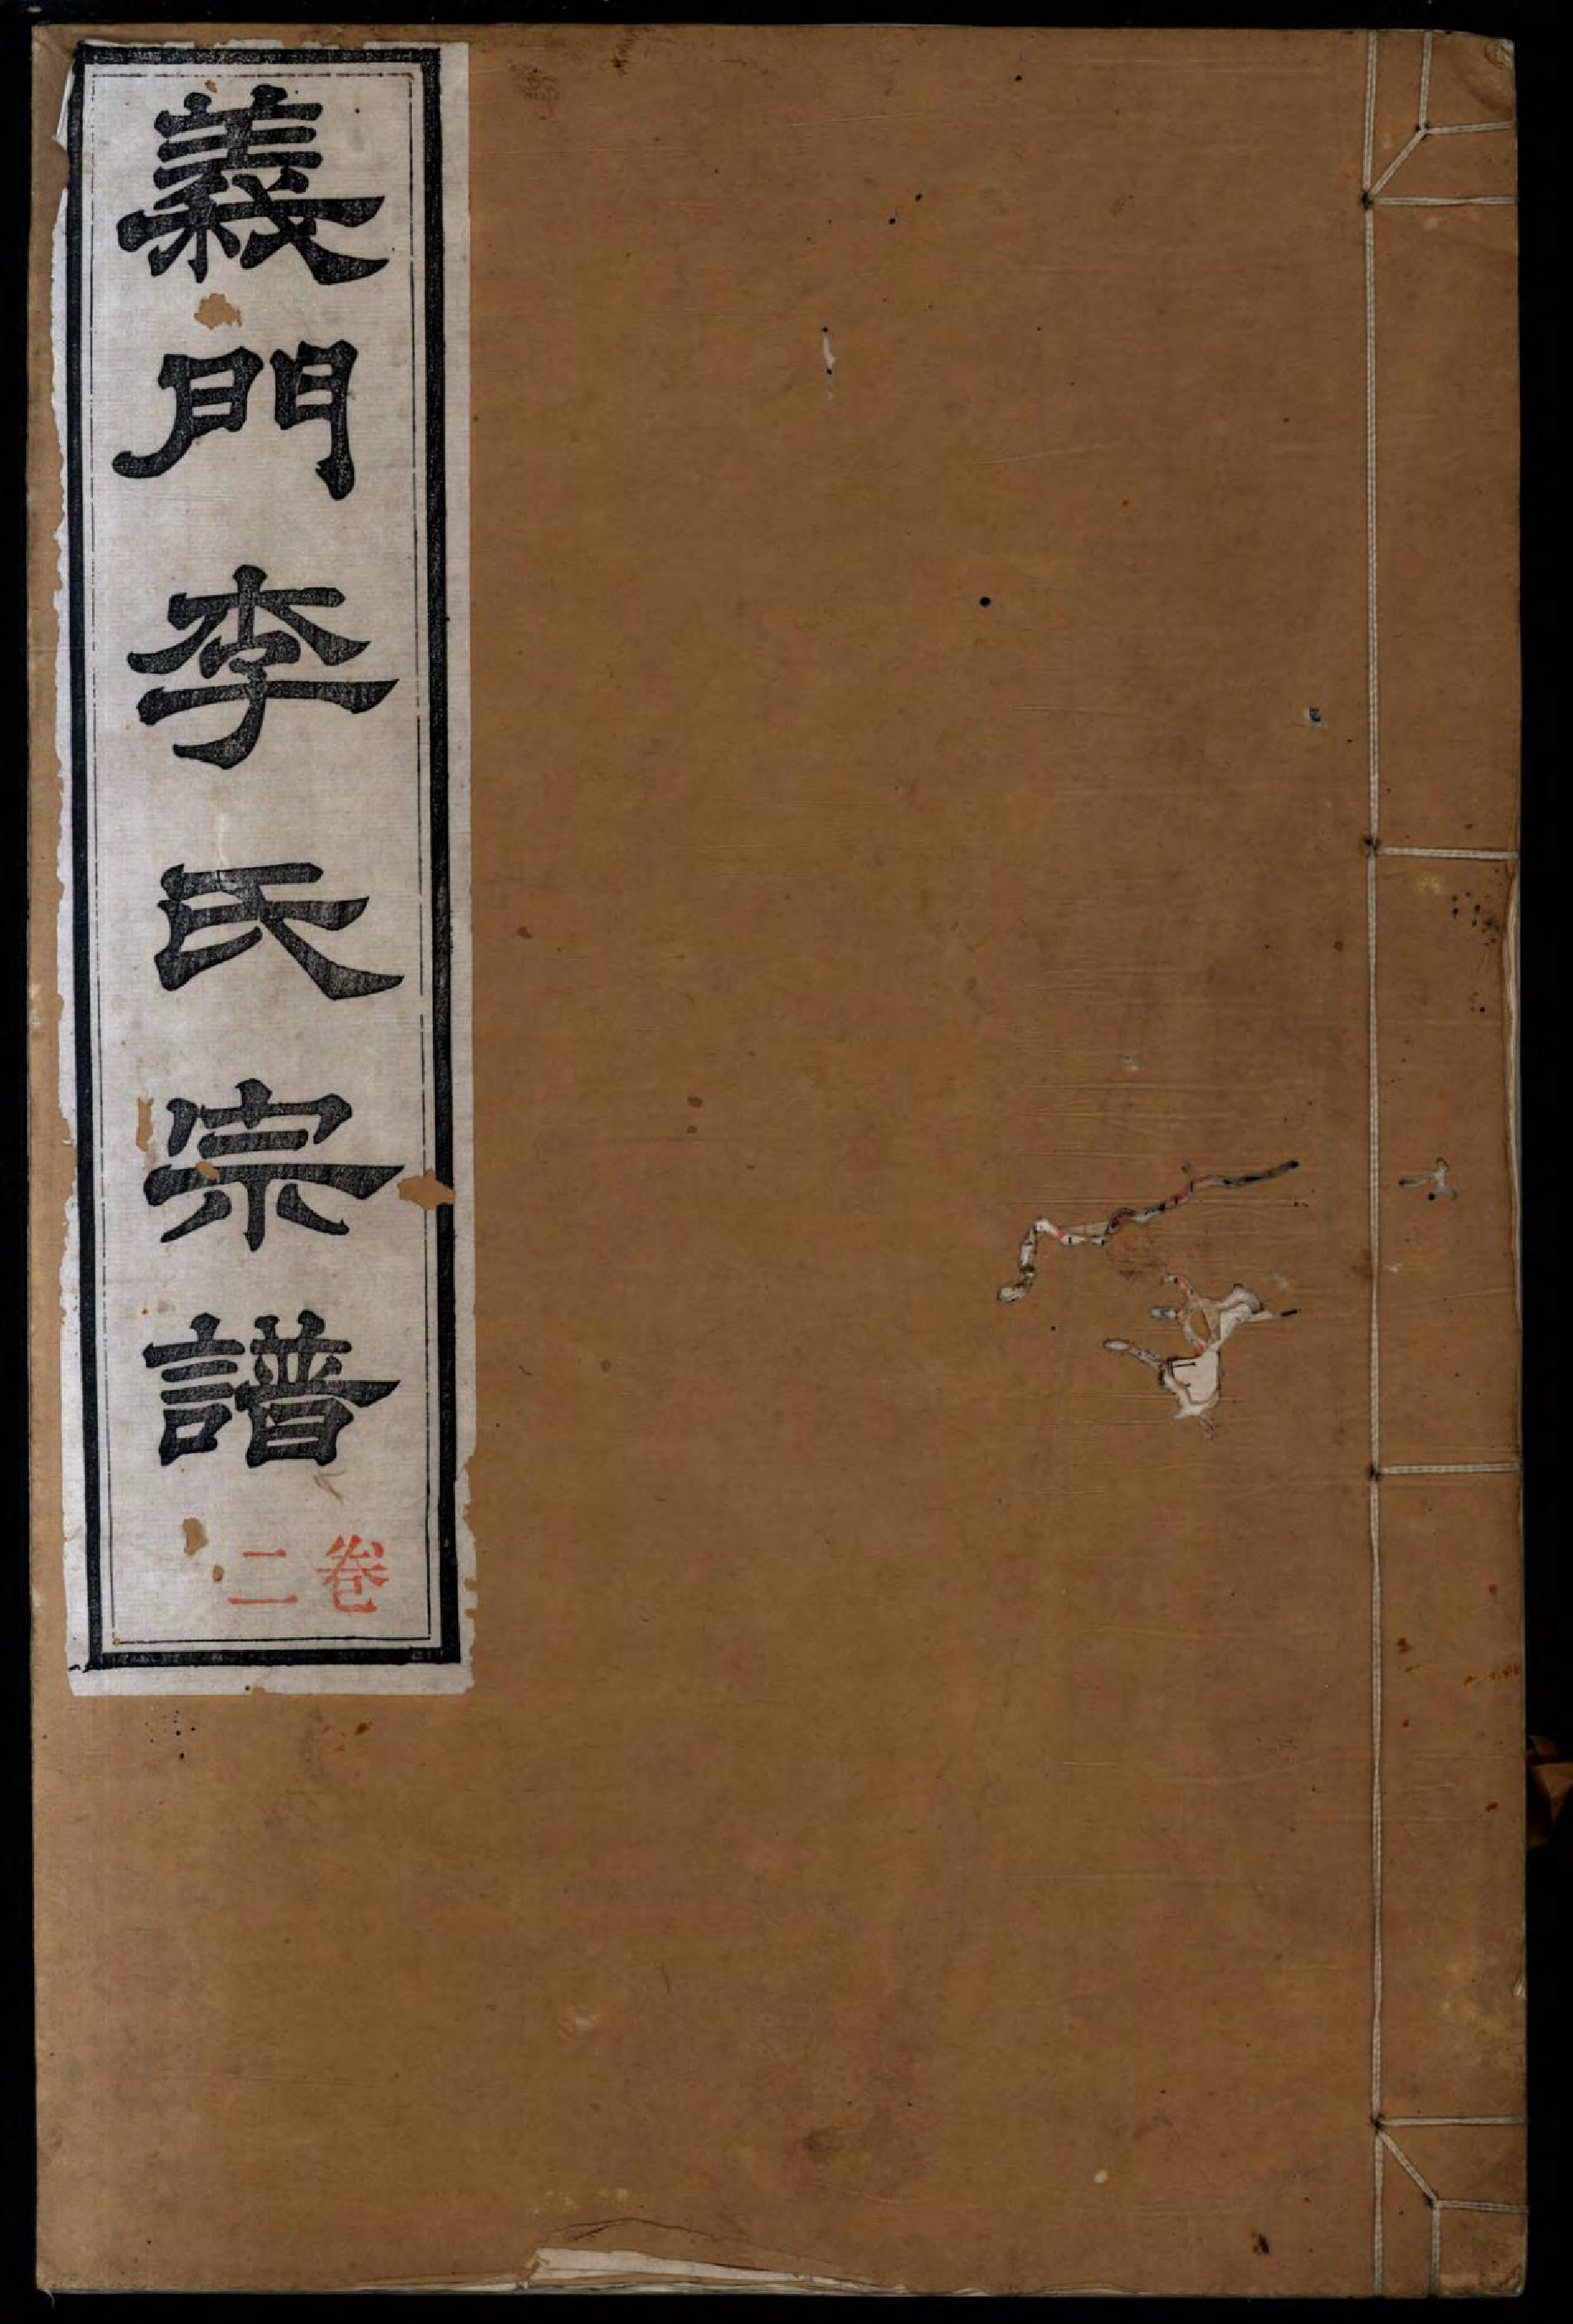 義門李氏宗譜
卷二